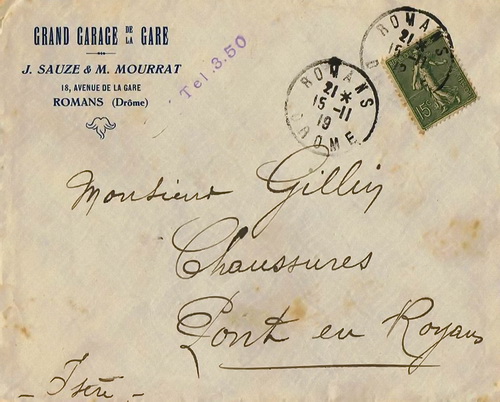 GRAND GARAGE DE LA GARE
J. SAUZE & M. MOURRAT
18, AVENUE DE LA GARE
ROMANS (Drôme)
Tel. 3.50
ROMANS
21 *
15 -11
19
DROME
ROMANS
21 *
15
15c
Monsieur Gillin
Chaussures
Pont en Royans
- Isère -